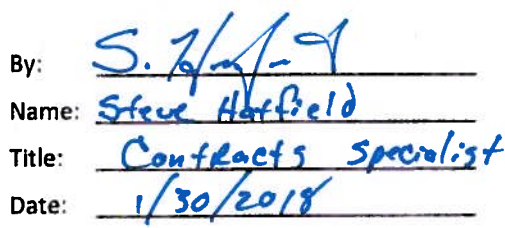 By: S.
Name: Steve Hatfield
Title: Contracts Specialist
Date: 1/30/2018